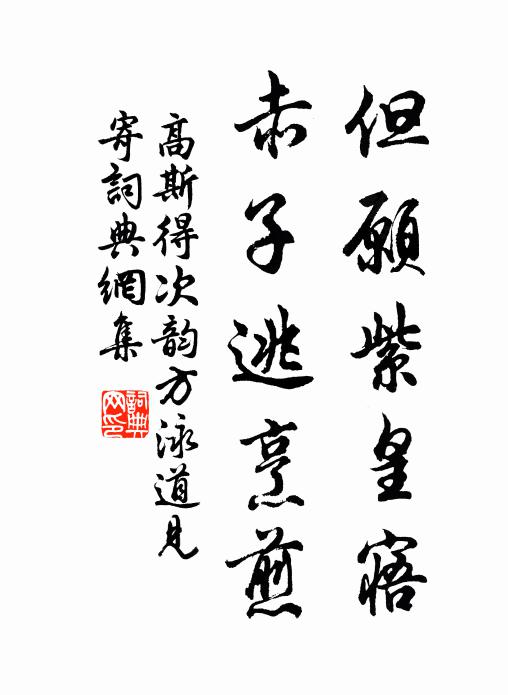 但願紫皇寤
赤子逃烹煎
高斯得次韵方泳道見
寄詞典網集
詞典网印